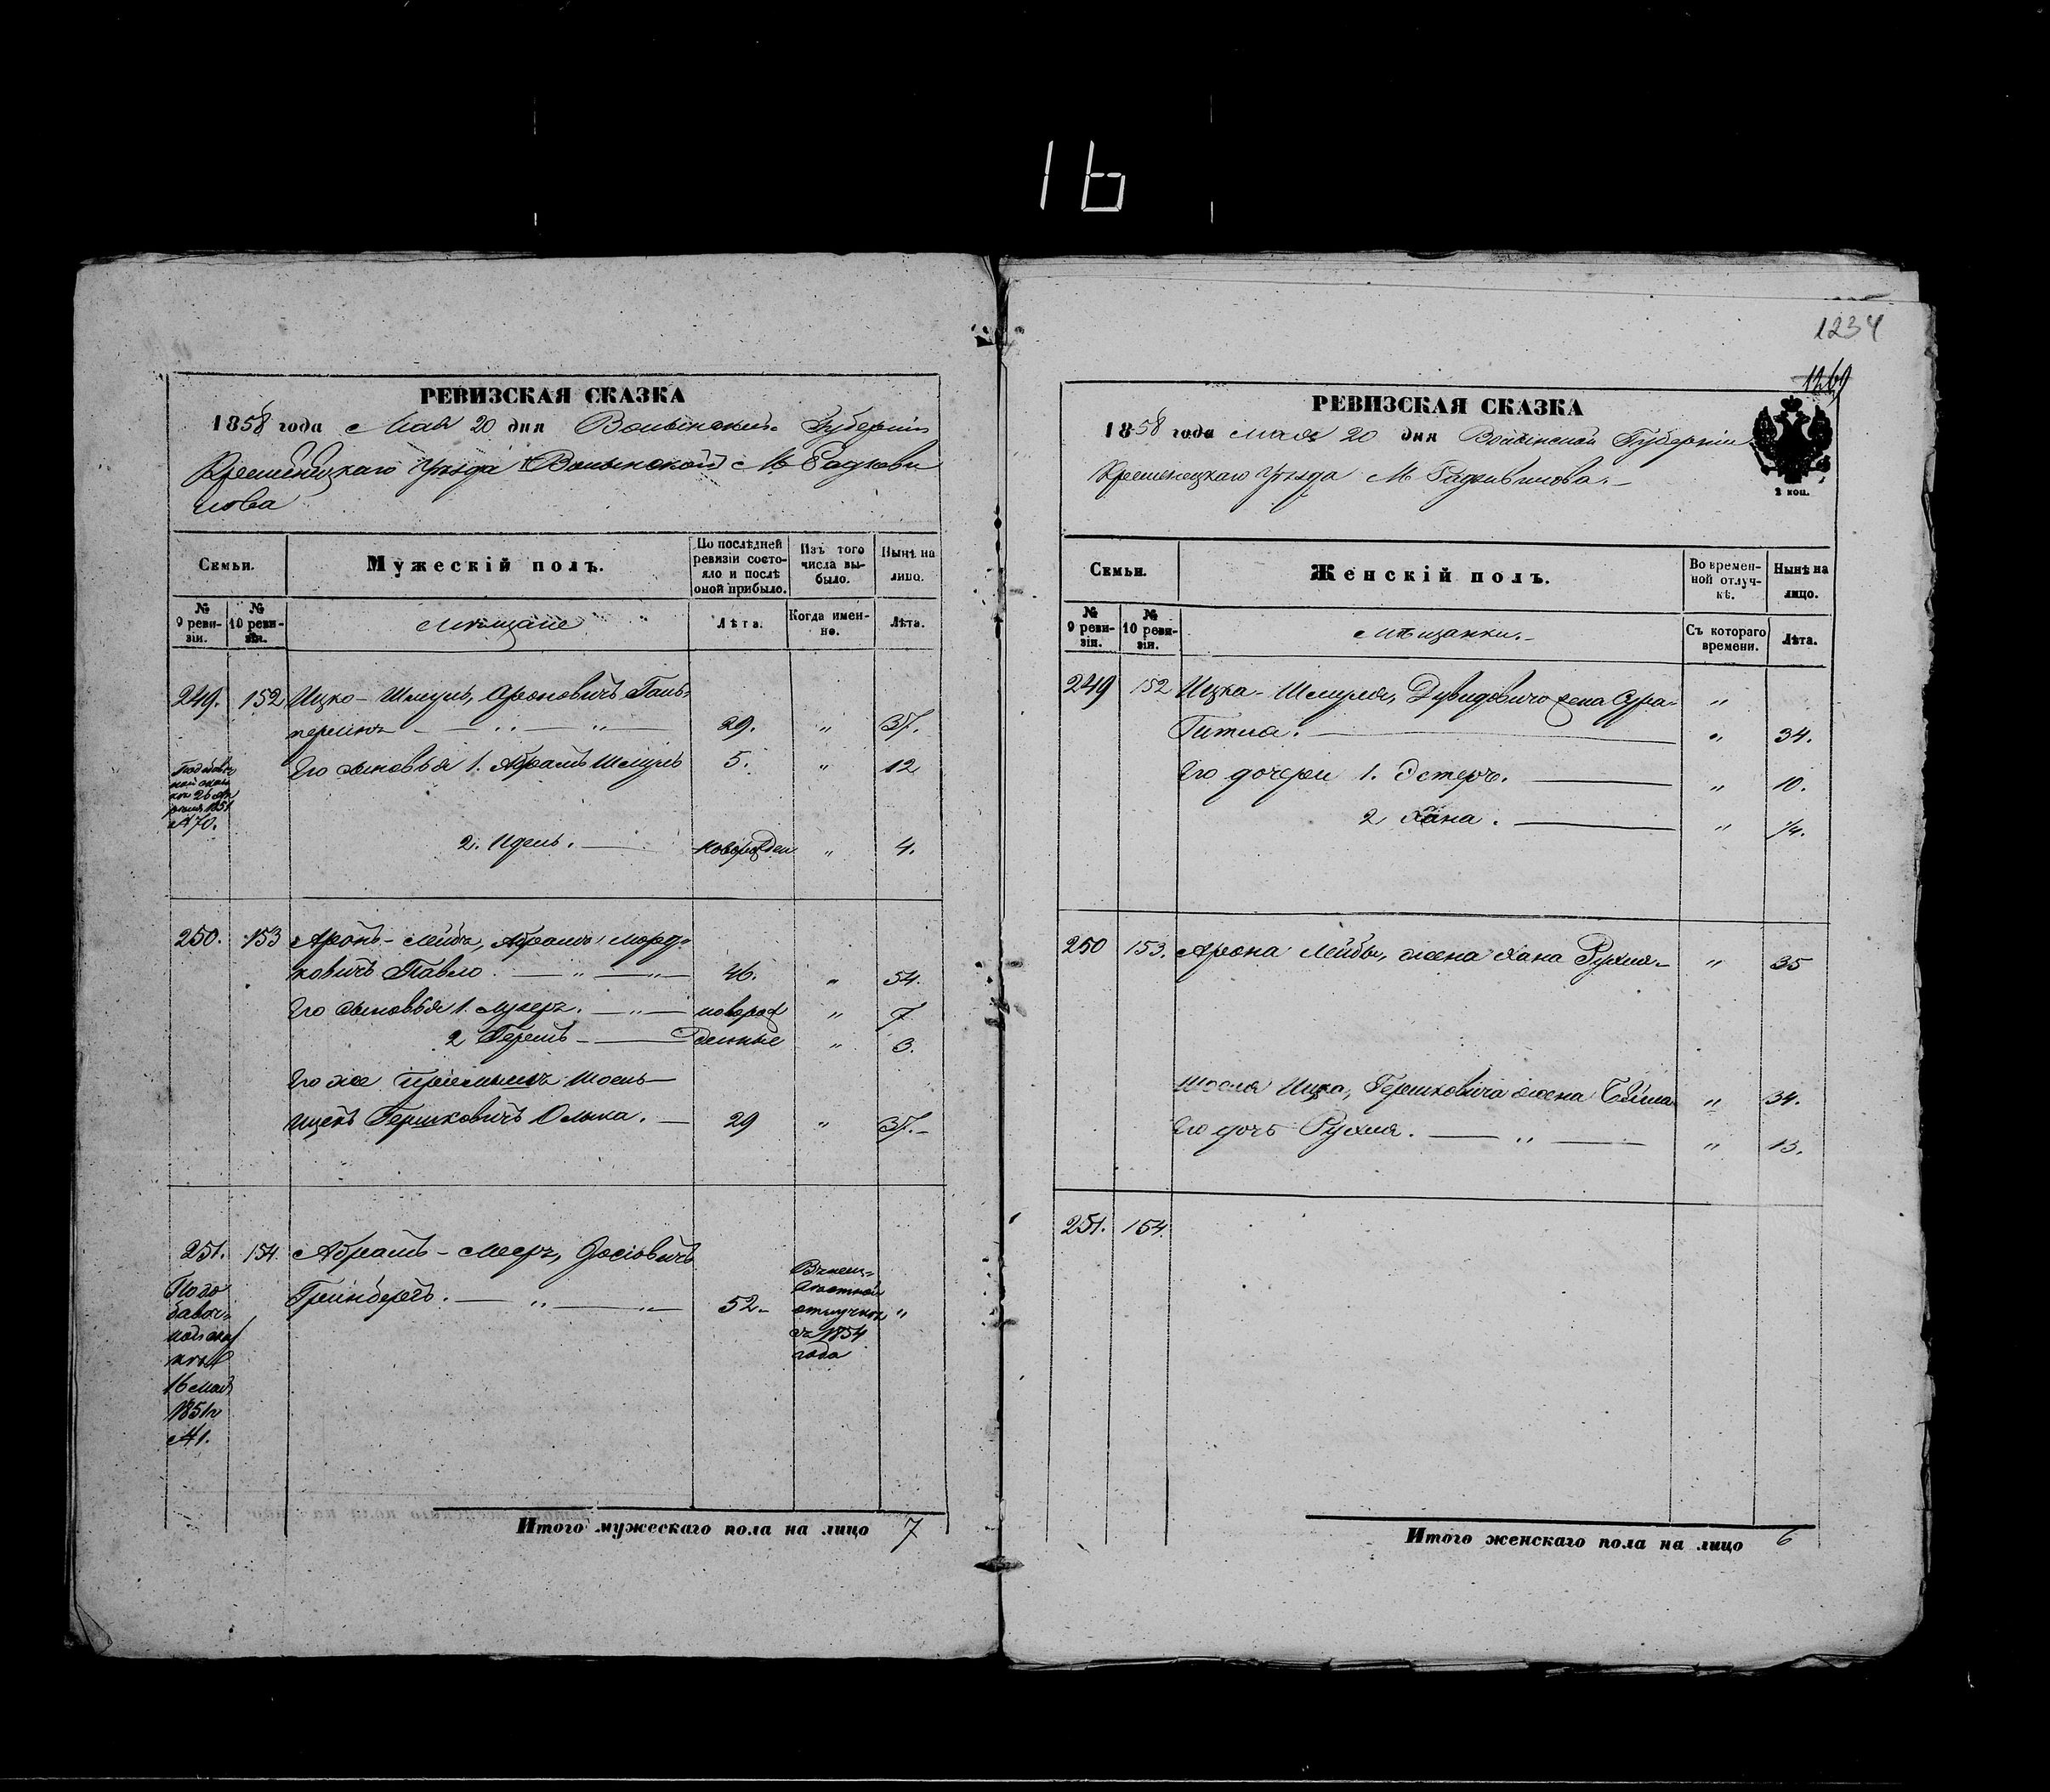 16
РЕВИЗСКАЯ СКАЗКА
1858 года Мая 20 дня Волынской Губерніи
Кременецкаго Уѣзда Волынской М Радзиви
лова
Семьи.
Мужескій полъ.
По послѣдней ревизіи состояло и послѣ оной прибыло.
Изъ того числа выбыло.
Нынѣ на лицо.
№ 9 ревизіи.
№ 10 ревизіи.
Мѣщане
Лѣта.
Когда именно.
Лѣта.
249. 152 Ицко-Шмуль, Ароновичъ Галь-
перинъ 29. " 37.
Его сыновья 1. Абрамъ Шмуль 5. " 12
По добавоч
ной сказ
кѣ 26
1851
№ 70.
2. Идель. новорожден " 4.
250. 153 Аронъ-Лейба, Абрамъ Морд-
ковичъ Павло. 46. " 54.
Его сыновья 1. Лузеръ. новорож " 7
2 Герешъ денные " 3.
Его же Пріемышъ Шоель-
Ицекъ Гершковичъ Олыка. 29 " 37.
251. 154 Абрамъ-Мееръ, Іосіовичъ
Гринбергъ. 52. "
По до
бавоч-
ной сказ
кѣ
16 Мая
1851г
№ 1.
отлучкѣ
съ 1854
года
Итого мужескаго пола на лицо 7
1234
1269
РЕВИЗСКАЯ СКАЗКА
1858 года мая 20 дня Волынской Губерніи
Кременецкаго Уѣзда М Радзивилова.
2 коп.
Семьи.
Женскій полъ.
Во временной отлучкѣ.
Нынѣ на лицо.
№ 9 ревизіи.
№ 10 ревизіи.
Мѣщанки.
Съ котораго времени.
Лѣта.
249 152 Ицка-Шмуля, Дувидовича жена Сура- "
Гитла. " 34.
Его дочери 1. Эстеръ. " 10.
2 Хана. " 1/4.
250 153. Арона Лейбы, жена Хана Рухля " 35
Шоеля Ицка, Гершковича жена Бейла " 34.
Его дочь Рухля. " 13.
251. 154.
Итого женскаго пола на лицо 6